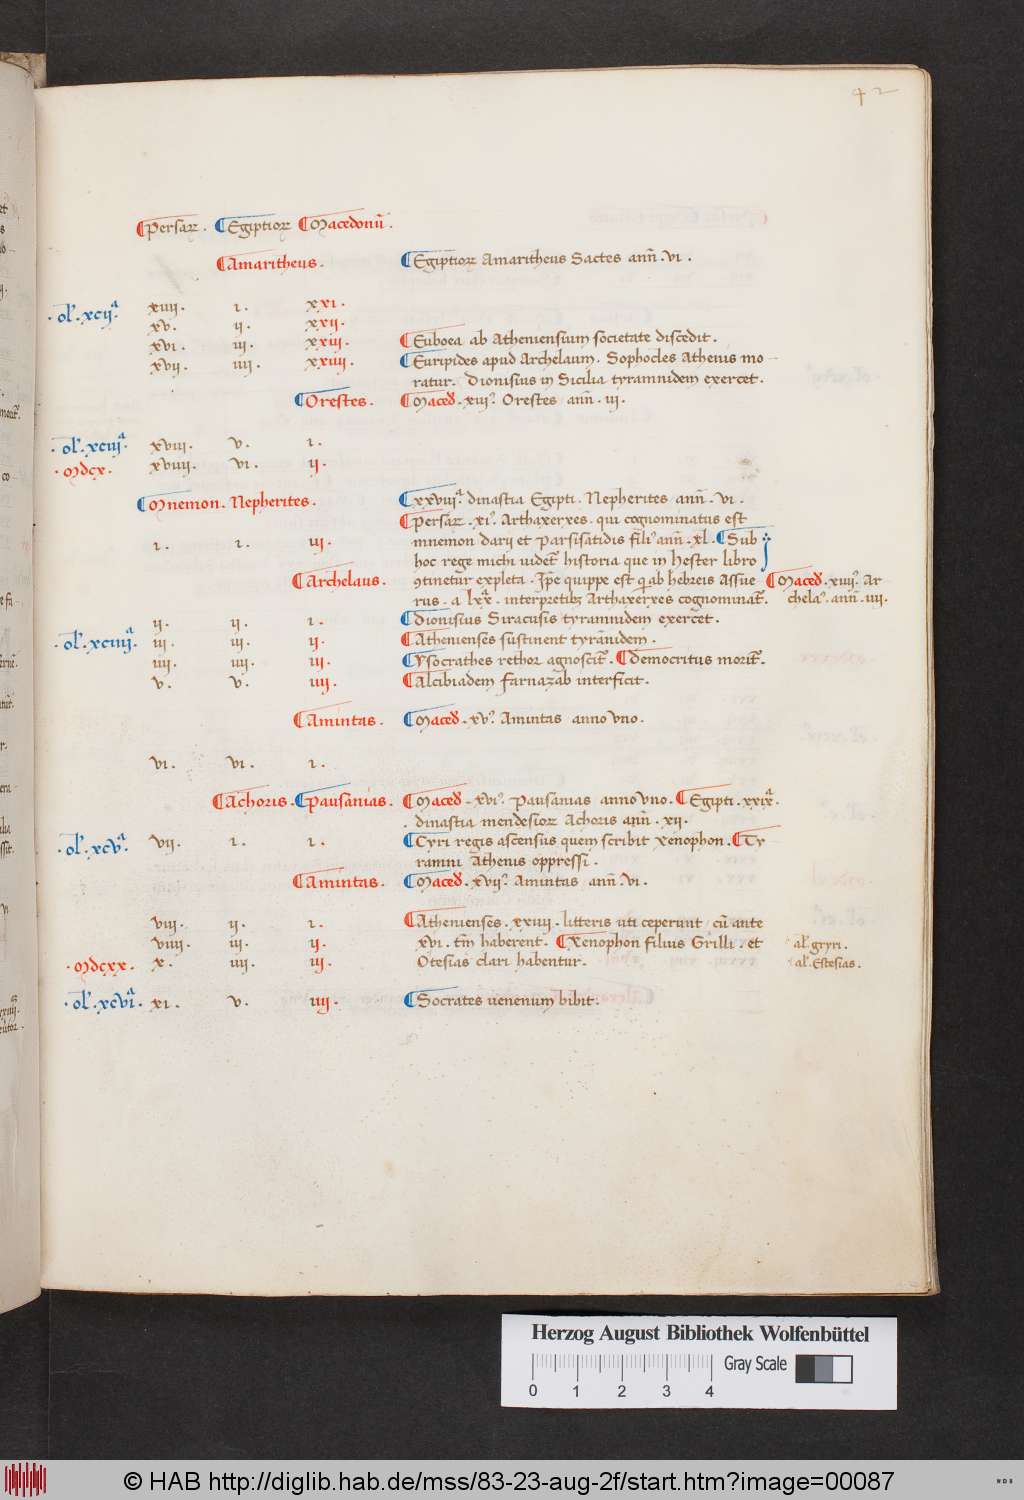 42
¶Persaꝝ. ¶Egiptioꝝ ¶Macedonū.
¶Amaritheus. ¶Egiptioꝝ Amaritheus Sactes ann̄. vi.
.ol̄. xcijᵃ. xiiij. ı. xxı.
xv. ij. xxij.
xvi. iij. xxiij. ¶Euboea ab Atheniensium societate discedit.
xvij. iiij. xxiiij. ¶Euripides apud Archelaum. Sophocles Athenis mo-
ratur. Dionisius in Sicilia tyrannidem exercet.
¶Orestes. ¶Maced̄. xiijˀ. Orestes ann̄. iij.
.ol̄. xciijᵃ. xviij. v. ı.
.Mdcx. xviiij. vi. ij.
¶Mnemon. Nepherites. ¶xxviiijᵃ. dinastia Egipti. Nepherites ann̄. vi.
¶Persaꝝ. xiˀ. Arthaxerxes. qui cognominatus est
ı. ı. iij. mnemon darij et parisatidis filiˀ ann̄. xl. ¶Sub
hoc rege michi uidet̄ historia que in Hester libro
¶Archelaus. ꝯtinetur expleta. Ip̄e quippe est q̄ ab hebreis Assue ¶Maced̄. xiiijˀ. Ar
rus. a lxx̄. interpretibꝫ Arthaxerxes cognominat̄. chelaˀ. ann̄. iiij.
ij. ij. ı. ¶Dionisius Siracusis tyrannidem exercet.
.ol̄. xciiijᵃ. iij. iij. ij. ¶Athenienses sustinent tyrānidem.
iiij. iiij. iij. ¶Ysocrathes rethor agnoscit̄. ¶Democritus morit̄.
v. v. iiij. ¶Alcibiadem farnazab interficit.
¶Amintas. ¶Maced̄. xvˀ. Amintas anno vno.
vi. vi. ı.
¶Achoris. ¶Pausanias. ¶Maced̄. xviˀ. Pausanias anno vno. ¶Egipti. xxixᵃ.
dinastia mendesioꝝ Achoris ann̄. xij.
.ol̄. xcvᵃ. vij. ı. ı. ¶Cyri regis ascensus quem scribit xenophon. ¶Ty
ranni Athenis oppressi.
¶Amintas. ¶Maced̄. xvijˀ. Amintas ann̄. vi.
viij. ij. ı. ¶Athenienses. xxiiij. litteris uti ceperunt cū ante
viiij. iij. ij. xvi. tm̄ haberent. ¶Xenophon filius Grilli. et al̄. gryri.
.Mdcxx. x. iiij. iij. Otesias clari habentur. al̄. Estesias.
.ol̄. xcviᵃ. xi. v. iiij. ¶Socrates uenenum bibit.
Herzog August Bibliothek Wolfenbüttel
Gray Scale
0 1 2 3 4
© HAB http://diglib.hab.de/mss/83-23-aug-2f/start.htm?image=00087